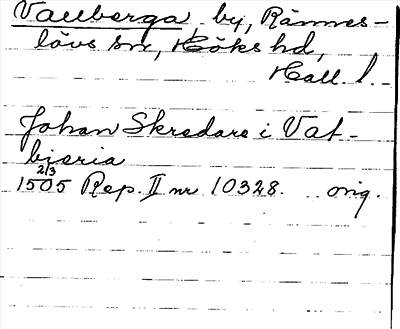 Vallberga, by, Rännes-
lövs sn, Höks hd,
Hall. l.
Johan Skredare i Vat-
bieria
2/3
1505 Rep. II nr 10328. orig.